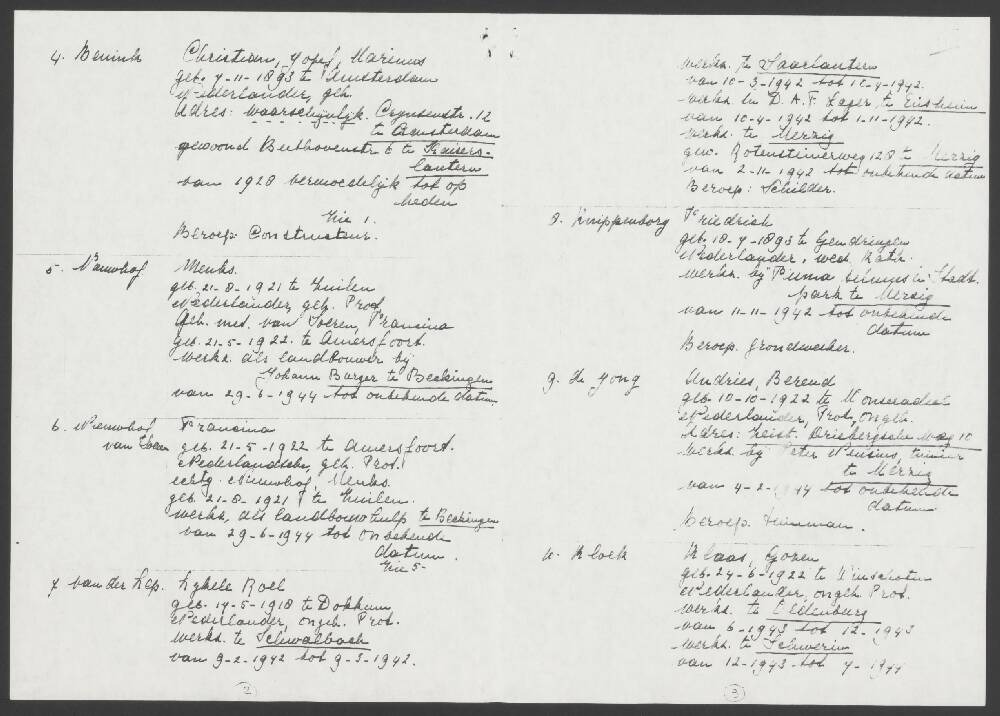 4. Benink Christiaan, Josef, Marinus
geb. 7-11-1893 te Amsterdam
Nederlander, geh.
Adres: waarschijnlijk Crynsenstr. 12
te Amsterdam
gewoond Beethovenstr 6 te Kaisers-
lautern
van 1928 vermoedelijk tot op
heden
Zie 1.
Beroep: Constructeur.
5. Nieuwhof Menks.
geb. 21-8-1921 te Zuilen
Nederlander, geh. Prof.
Geh. met. van Soeren, Francina
geb. 21-5-1922 te Amersfoort.
werkz. als landbouwer bij
Johann Burger te Beckingen
van 29-6-1944 tot onbekende datum.
6. Nieuwhof Francina
van geb. 21-5-1922 te Amersfoort.
Nederlandsche, geh. Prot.
echtg. Nieuwhof, Menks.
geb. 21-8-1921 te Zuilen.
werkz. als landbouwhulp te Beckingen
van 29-6-1944 tot onbekende
datum.
Zie 5.
7. van der Lep. Lykele Roel
geb. 14-5-1918 te Dokkum
Nederlander, ongeh. Prot.
werkz. te Schwalbach
van 9-2-1942 tot 9-3-1942.
2
werkz. te Saarlautern
van 10-3-1942 tot 10-4-1942.
werkz. in D.A.F. Lager te Ensheim
van 10-4-1942 tot 1-11-1942.
werkz. te Merzig
gew. Rotensteinerweg 128 te Merzig
van 2-11-1942 tot onbekende datum
Beroep: Schilder.
8. Knippenborg Friedrich
geb. 18-7-1893 te Gendringen
Nederlander, wed. Kath.
werkz. bij Firma in Stadt-
park te Merzig
van 11-11-1942 tot onbekende
datum
Beroep. Grondwerker.
9. de Jong Andries, Berend
geb. 10-10-1922 te
Nederlander, Prot, ongeh.
Adres: Zeist. Driebergsche weg 10
werkz. bij Peter
te Merzig
van 4-2-1944 tot onbekende
datum
Beroep. tuinman.
10. Kloek Klaas, Gozen
geb. 24-6-1922 te Winschoten
Nederlander, ongeh. Prot.
werkz. te Oldenburg
van 6-1943 tot 12-1943
werkz. te Schwerin
van 12-1943 tot 7-1944
3